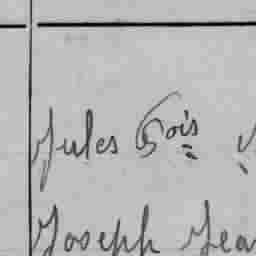 Jules Fois
Joseph Jea